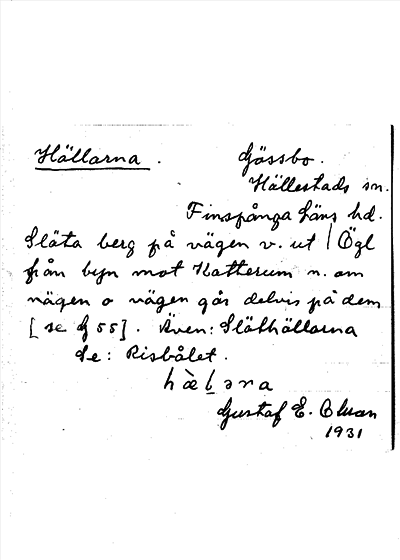 Hällarna. Gössbo.
Hällestads sn.
Finspånga läns hd.
Släta berg på vägen v. ut / Ögl
från byn mot Katterum n. om
vägen o vägen går delvis på dem
[se G 55]. Även: Släthällarna
Se: Risbålet.
hæ̀ḷəna
Gustaf E. Olsson
1931